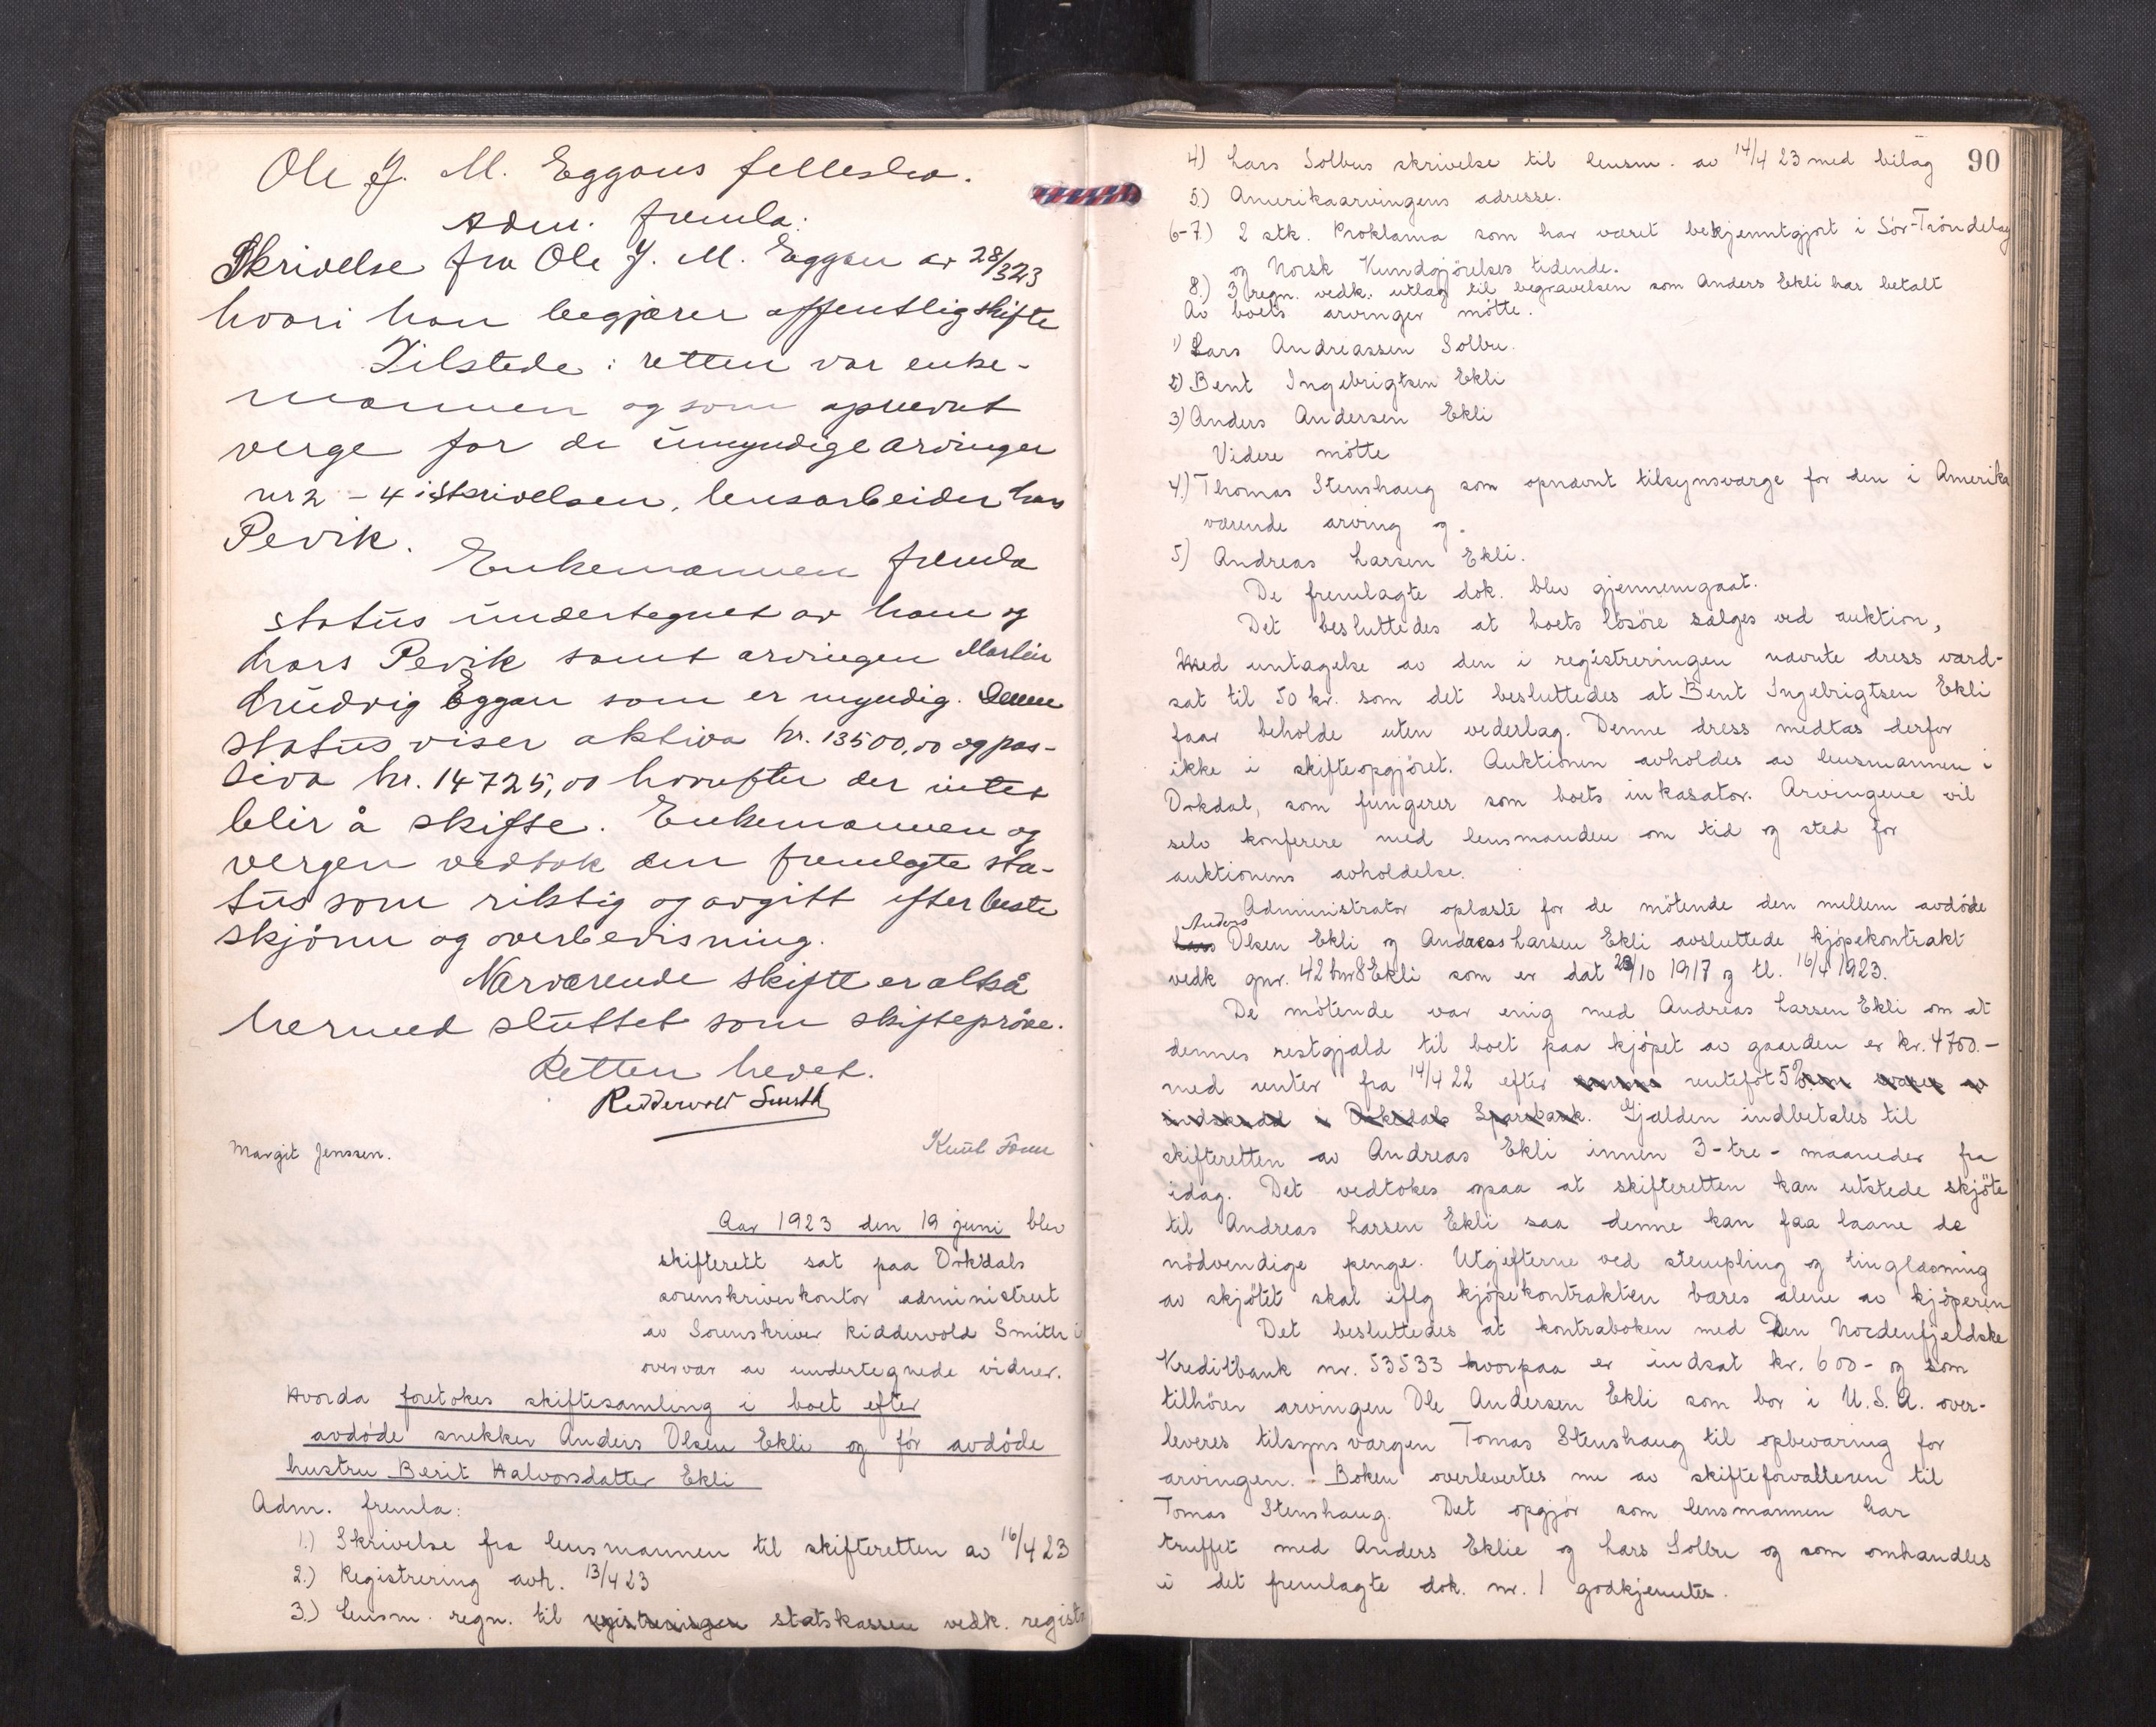 Ole J. M. Eggens fellesbo.
Adm. fremla:
Skrivelse fra Ole J. M. Eggen av 28/3 23
hvori han begjærer offentlig skifte
Tilstede i retten var enke-
mannen og som opnevnt
verge for de umyndige arvinger
nr 2 - 4 i skrivelsen, lensarbeider Lars
Pevik.
Enkemannen fremla
status undertegnet av ham og
Lars Pevik samt arvingen Martin
Ludvig Eggen som er myndig. Denne
status viser aktiva kr. 13500,00 og pas-
siva kr. 14725,00 hvorefter der intet
blir å skifte. Enkemannen og
vergen vedtok den fremlagte sta-
tus som riktig og avgitt efter beste
skjönn og overbevisning.
Nærværende skifte er altså
hermed sluttet som skifteprøve.
Retten hevet.
Ridderwold Smith
Margit Jenssen. Knut Foun
Aar 1923 den 19 juni blev
skifterett sat paa Orkdals
sorenskriverkontor administrert
av Sorenskriver Ridderwold Smith i
overvær av undertegnede vidner.
Hvorda foretokes skiftesamling i boet efter
avdöde snekker Anders Olsen Ekli og för avdöde
hustru Berit Halvorsdatter Ekli
Adm. fremla:
1.) Skrivelse fra lensmannen til skifteretten av 16/4 23
2.) Registrering avh. 13/4 23
3.) Lensm. regn. til registreringen statskassen vedk. registr
90
4) Lars Solbus skrivelse til lensm. av 14/4 23 med bilag
5.) Amerikaarvingens adresse.
6-7.) 2 stk. Proklama som har været bekjenntgjort i Sör-Tröndelag
og Norsk Kundgjörelses tidende.
8.) 3 regn. vedk. utlæg til begravelsen som Anders Ekli har betalt
Av boets arvinger mötte.
1) Lars Andreassen Solbu.
2) Bent Ingebrigtsen Ekli
3) Anders Andersen Ekli
Videre mötte
4.) Thomas Stenshaug som opnævnt tilsynsværge for den i Amerika
værende arving og
5) Andreas Larsen Ekli.
De fremlagte dok. blev gjennemgaat.
Det besluttedes at boets lösöre sælges ved auktion,
med untagelse av den i registreringen nævnte dress værd-
sat til 50 kr. som det besluttedes at Bent Ingebrigtsen Ekli
faar beholde uten vederlag. Denne dress medtas derfor
ikke i skifteopgjöret. Auktionen avholdes av lensmannen i
Orkdal, som fungerer som boets inkasator. Arvingene vil
selv konferere med lensmanden om tid og sted for
auktionens avholdelse.
Administrator oplæste for de mötende den mellem avdöde
Anders
Lars Olsen Ekli og Andreas Larsen Ekli avsluttede kjöpekontrakt
vedk gnr. 42 bnr 8 Ekli som er dat 23/10 1917 og tl. 16/4 1923.
De mötende var enig med Andreas Larsen Ekli om at
dennes restgjæld til boet paa kjöpet av gaarden er kr. 4700.-
med renter fra 14/4 22 efter rentefot 5 %
indskudd i Orkedals Sparebank. Gjælden indbetales til
skifteretten av Andreas Ekli innen 3 - tre - maaneder fra
idag. Det vedtokes ogsaa at skifteretten kan utstede skjöte
til Andreas Larsen Ekli saa denne kan faa laane de
nödvendige penge. Utgifterne ved stempling og tinglæsning
av skjötet skal iflg kjöpekontrakten bæres alene av kjöperen
Det besluttedes at kontraboken med Den Nordenfjeldske
Kreditbank nr. 53533 hvorpaa er indsat kr. 600- og som
tilhörer arvingen Ole Andersen Ekli som bor i U.S.A. over-
leveres tilsynsværgen Tomas Stenshaug til opbevaring for
arvingen. - Boken overlevertes nu av skifteforvalteren til
Tomas Stenshaug. Det opgjör som lensmannen har
truffet med Anders Eklie og Lars Solbu og som omhandles
i det fremlagte dok. nr. 1 godkjenntes.